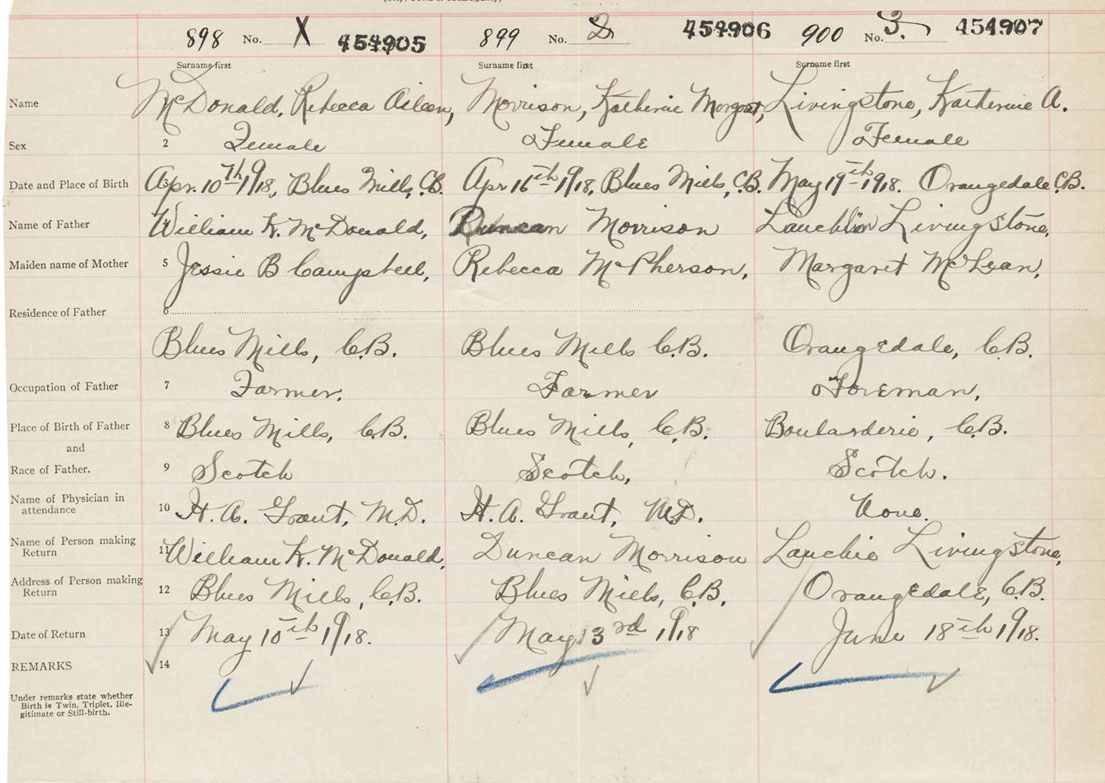 898 No. X 454905 899 No. 2 454906 900 No. 3. 454907
Surname first Surname first Surname first
Name McDonald, Rebecca Aileen, Morrison, Katherine Margaret, Livingstone, Katherine A.
Sex 2 Female Female Female
Date and Place of Birth 3 Apr. 10th 1918, Blues Mills, C.B. Apr 16th 1918, Blues Mills, C.B. May 19th 1918. Orangedale C.B.
Name of Father William K. McDonald, Duncan Morrison Lauchlin Livingstone,
Maiden name of Mother 5 Jessie B Campbell, Rebecca McPherson, Margaret McLean,
Residence of Father 6
Blues Mills, C.B. Blues Mills C.B. Orangedale, C.B.
Occupation of Father 7 Farmer. Farmer Foreman,
Place of Birth of Father 8 Blues Mills, C.B. Blues Mills, C.B. Boularderie, C.B.
and
Race of Father. 9 Scotch Scotch, Scotch.
Name of Physician in
attendance 10 H. A. Grant, M.D. H. A. Grant, M.D. None.
Name of Person making
Return 11 William K. McDonald, Duncan Morrison Lauchie Livingstone,
Address of Person making
Return 12 Blues Mills, C.B. Blues Mills, C.B, Orangedale, C.B.
Date of Return 13 May 10th 1918. May 3rd 1918 June 18th 1918.
REMARKS 14
Under remarks state whether
Birth is Twin, Triplet, Ille-
gitimate or Still-birth.